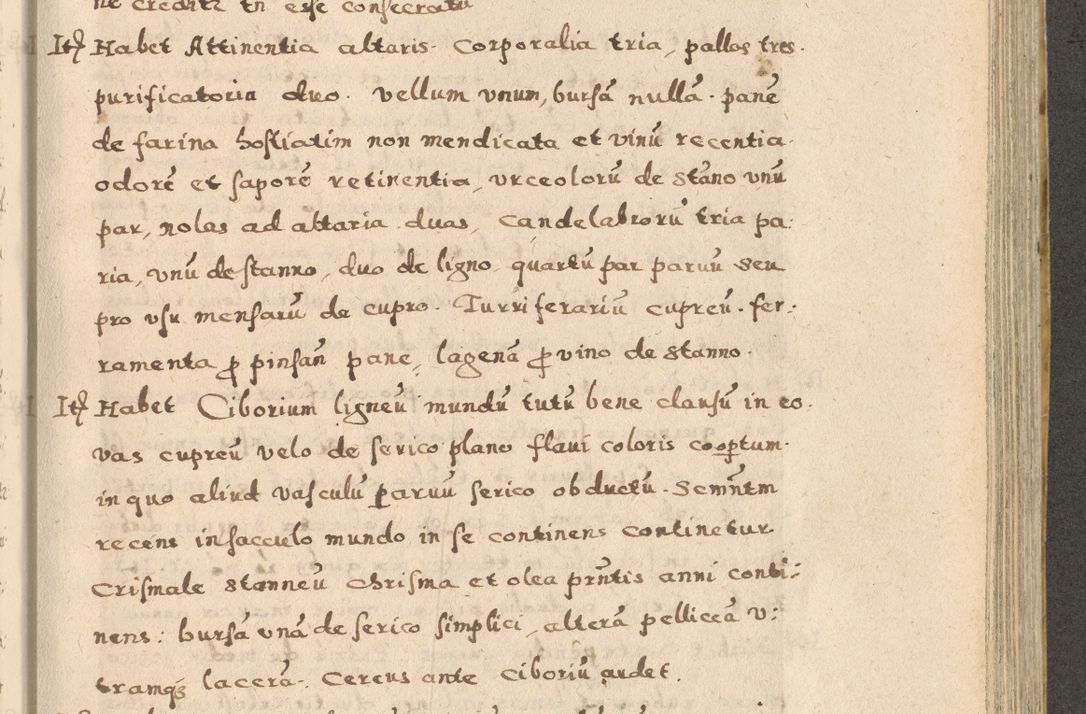 ne creditz tñ esse consecratũ
Itꝫ Habet Attinentia altaris. Corporalia tria, pallas tres.
purificatoria duo. vellum vnum, bursã nullã. panẽ
de farina hostiatim non mendicata et vinũ recentia.
odorẽ et saporẽ retinentia, vrceolorũ de stãno vnũ
par, nolas ad altaria duas, Candelabrorũ tria pa:
ria, vnũ de stanno, duo de ligno quartũ par paruũ seu
pro vsu mensarũ de cupro. Turriferariũ cupreũ. fer:
ramenta ꝓ pinsañ pane, lagenã ꝓ vino de stanno.
Itꝫ Habet Ciborium ligneũ mundũ tutũ bene clausũ in eo.
vas cupreũ velo de serico plano flaui coloris coopertum.
in quo aliud vasculũ paruũ serico obductũ. Scmñtm
recens in sacculo mundo in se continens continetur
Crismale stanneũ Chrisma et olea prñtis anni conti:
nens: bursã vnã de serico simplici, alterã pelliceã v:
tramqꝫ lacerã. Cereus ante Ciboriũ ardet.